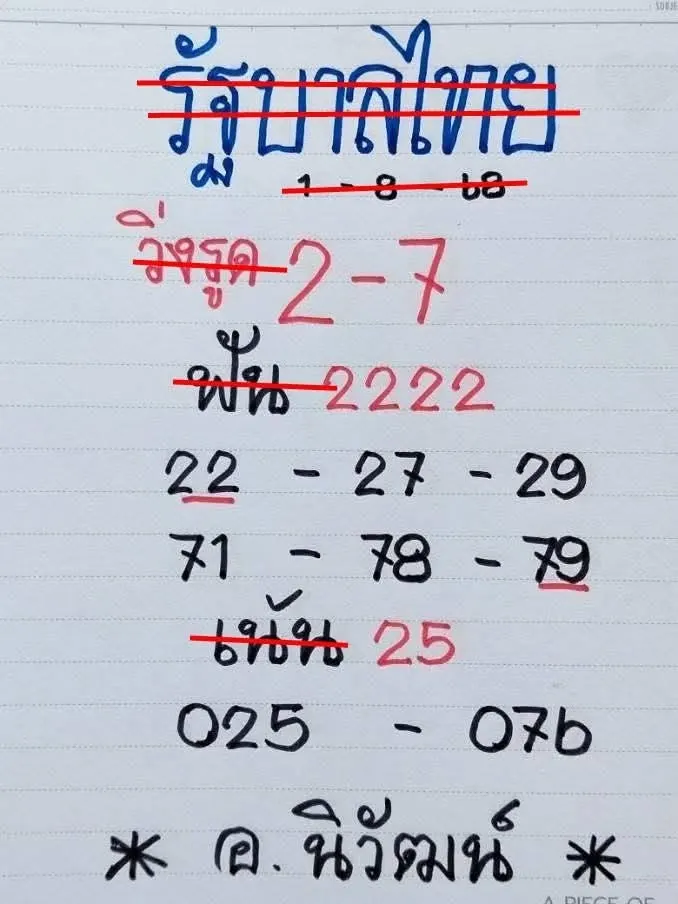 SUBJE
รัฐบาลไทย
1 - 8 - 68
วิ่งรูด 2-7
ฟัน 2222
22 - 27 - 29
71 - 78 - 79
เน้น 25
025 - 076
* อ. นิวัฒน์ *
A PIECE OF